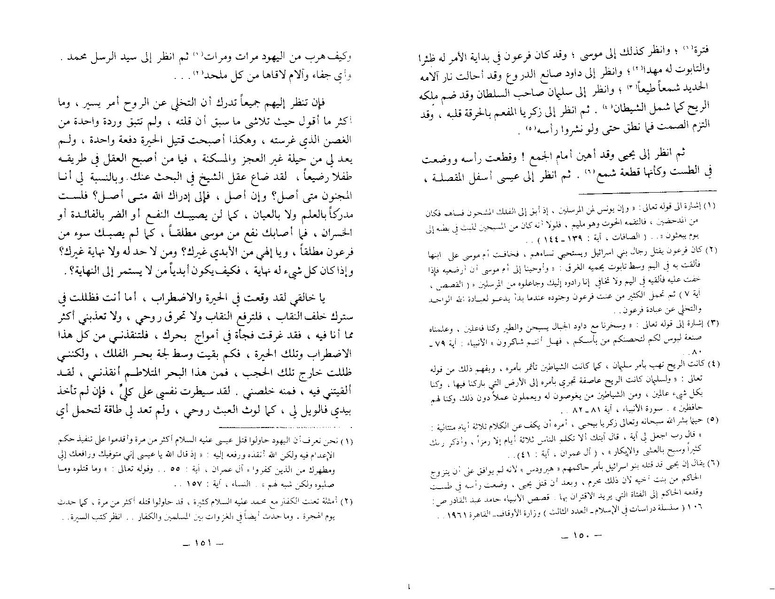 فترة(١) ؛ وانظر كذلك إلى موسى ؛ وقد كان فرعون في بداية الأمر له ظئرا
والتابوت له مهدا(٢) ؛ وانظر إلى داود صانع الدروع وقد أحالت نار آلامه
الحديد شمعاً طيعاً(٣) ؛ وانظر إلى سليمان صاحب السلطان وقد ضم ملكه
الريح كما شمل الشيطان(٤) . ثم انظر إلى زكريا المفعم بالحرقة قلبه ، وقد
التزم الصمت فما نطق حتى ولو نشروا رأسه(٥) .
ثم انظر إلى يحيى وقد أهين أمام الجمع ! وقطعت رأسه ووضعت
في الطست وكأنها قطعة شمع(٦) . ثم انظر إلى عيسى أسفل المقصلة ،
(١) إشارة الى قوله تعالى : « وإن يونس لمن المرسلين ، إذ أبق إلى الفلك المشحون فساهم فكان
من المدحضين ، فالتقمه الحوت وهو مليم ، فلولا أنه كان من المسبحين للبث في بطنه إلى
يوم يبعثون » .. ( الصافات ، آية : ١٣٩ - ١٤٤ ) ..
(٢) كان فرعون يقتل رجال بني اسرائيل ويستحيي نساءهم ، فخافت أم موسى على ابنها
فألقت به في اليم وسط تابوت يحميه الغرق : « وأوحينا إلى أم موسى أن أرضعيه فإذا
خفت عليه فألقيه في اليم ولا تخافي إنا رادوه إليك وجاعلوه من المرسلين » ( القصص ،
آية ٧ ) ثم تحمل الكثير من عنت فرعون وجنوده عندما بدأ يدعو لعبادة الله الواحد
والتخلي عن عبادة فرعون ..
(٣) إشارة إلى قوله تعالى : « وسخرنا مع داود الجبال يسبحن والطير وكنا فاعلين ، وعلمناه
صنعة لبوس لكم لتحصنكم من بأسكم ، فهل أنتم شاكرون » الأنبياء : آية ٧٩ -
٨٠ ..
(٤) كانت الريح تهب بأمر سليمان ، كما كانت الشياطين تأتمر بأمره ، ويفهم ذلك من قوله
تعالى : « ولسليمان كانت الريح عاصفة تجري بأمره إلى الأرض التي باركنا فيها ، وكنا
بكل شيء عالمين ، ومن الشياطين من يغوصون له ويعملون عملاً دون ذلك وكنا لهم
حافظين » . سورة الأنبياء ، آية ٨١ - ٨٢ ..
(٥) حينما بشر الله سبحانه وتعالى زكريا بيحيى ، أمره أن يكف عن الكلام ثلاثة أيام متتالية :
« قال رب اجعل لي آية ، قال آيتك ألا تكلم الناس ثلاثة أيام إلا رمزاً ، واذكر ربك
كثيراً وسبح بالعشي والإبكار » ، ( آل عمران ، آية : ٤١ ) ..
(٦) يقال إن يحيى قد قتله بنو اسرائيل بأمر حاكمهم « هيرودس » لأنه لم يوافق على أن يتزوج
الحاكم من بنت أخيه لأن ذلك محرم ، وبعد أن قتل يحيى ، وضعت رأسه في طست
وقدمه الحاكم إلى الفتاة التي يريد الاقتران بها . قصص الأنبياء حامد عبد القادر ص:
١٠٦ ( سلسلة دراسات في الإسلام - العدد الثالث ) وزارة الأوقاف - القاهرة ١٩٦١ ..
— ١٥٠ —
وكيف هرب من اليهود مرات ومرات(١) ثم انظر إلى سيد الرسل محمد .
وأي جفاء وآلام لاقاها من كل ملحد(٢) ...
فإن تنظر إليهم جميعاً تدرك أن التخلي عن الروح أمر يسير ، وما
أكثر ما أقول حيث تلاشى ما سبق أن قلته ، ولم تتبق وردة واحدة من
الغصن الذي غرسته ، وهكذا أصبحت قتيل الحيرة دفعة واحدة ، ولم
يعد لي من حيلة غير العجز والمسكنة ، فيا من أصبح العقل في طريقه
طفلا رضيعاً ، لقد ضاع عقل الشيخ في البحث عنك. وبالنسبة لي أنا
المجنون متى أصل؟ وإن أصل ، فإلى إدراك الله متى أصل؟ فلست
مدركاً بالعلم ولا بالعيان ، كما لن يصيبك النفع أو الضر بالفائدة أو
الخسران ، فما أصابك نفع من موسى مطلقاً ، كما لم يصبك سوء من
فرعون مطلقاً ، ويا إلهي من الأبدي غيرك؟ ومن لا حد له ولا نهاية غيرك؟
وإذا كان كل شيء له نهاية ، فكيف يكون أبدياً من لا يستمر إلى النهاية؟ .
يا خالقي لقد وقعت في الحيرة والاضطراب ، أما أنت فظللت في
سترك خلف النقاب ، فلترفع النقاب ولا تحرق روحي ، ولا تعذبني أكثر
مما أنا فيه ، فقد غرقت فجأة في أمواج بحرك ، فلتنقذني من كل هذا
الاضطراب وتلك الحيرة ، فكم بقيت وسط لجة بحر الفلك ، ولكنني
ظللت خارج تلك الحجب ، فمن هذا البحر المتلاطم أنقذني ، لقد
ألقيتني فيه ، فمنه خلصني . لقد سيطرت نفسي على كليٍّ ، فإن لم تأخذ
بيدي فالويل لي ، كما لوث العبث روحي ، ولم تعد لي طاقة لتحمل أي
(١) نحن نعرف أن اليهود حاولوا قتل عيسى عليه السلام أكثر من مرة وأقدموا على تنفيذ حكم
الإعدام فيه ولكن الله أنقذه ورفعه إليه : « إذ قال الله يا عيسى إني متوفيك ورافعك إلي
ومطهرك من الذين كفروا » آل عمران ، آية : ٥٥ .. وقوله تعالى : « وما قتلوه وما
صلبوه ولكن شبه لهم » .. النساء ، آية : ١٥٧ ..
(٢) أمثلة تعنت الكفار مع محمد عليه السلام كثيرة ، قد حاولوا قتله أكثر من مرة ، كما حدث
يوم الهجرة ، وما حدث أيضاً في الغزوات بين المسلمين والكفار .. انظر كتب السيرة..
— ١٥١ —